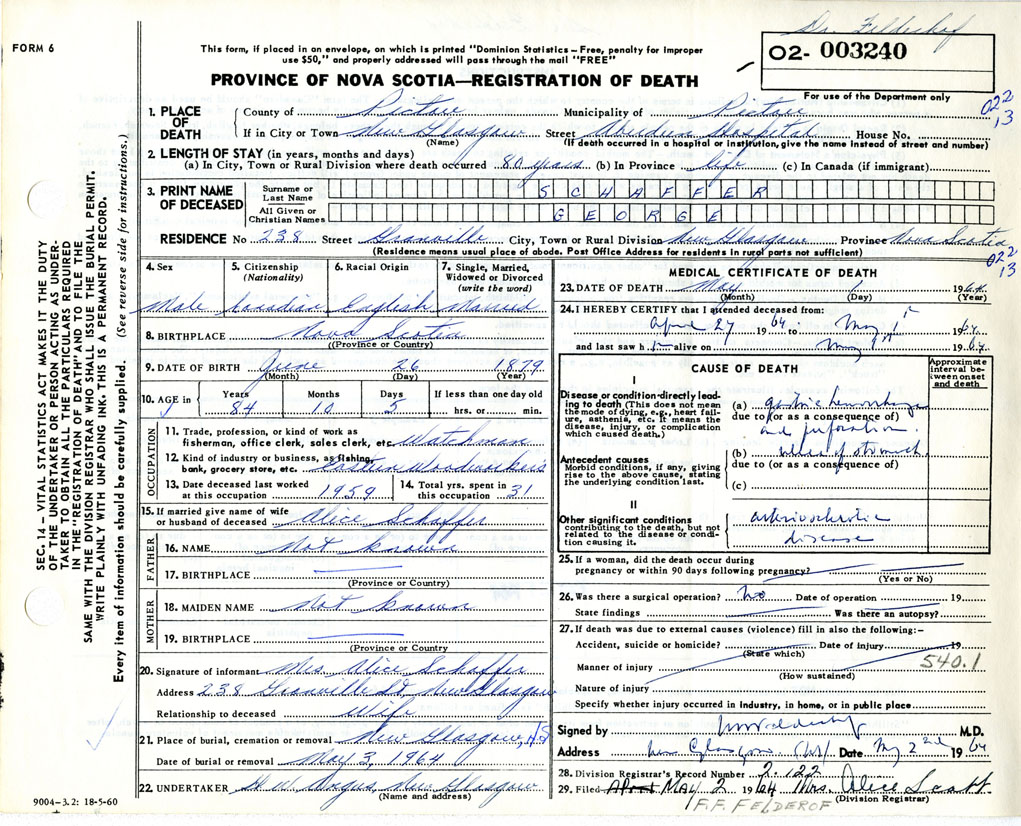 Dr. Felderhof
FORM 6
This form, if placed in an envelope, on which is printed "Dominion Statistics – Free, penalty for improper
use $50," and properly addressed will pass through the mail "FREE"
O2- 003240
PROVINCE OF NOVA SCOTIA—REGISTRATION OF DEATH
For use of the Department only
022
13
1. PLACE OF DEATH
County of Pictou Municipality of Pictou
If in City or Town New Glasgow Street Aberdeen Hospital House No.
(Name) (If death occurred in a hospital or institution, give the name instead of street and number)
2. LENGTH OF STAY (in years, months and days)
(a) In City, Town or Rural Division where death occurred 80 years (b) In Province life (c) In Canada (if immigrant)
3. PRINT NAME OF DECEASED
Surname or Last Name SCHAFFER
All Given or Christian Names GEORGE
RESIDENCE No 238 Street Granville City, Town or Rural Division New Glasgow Province Nova Scotia
(Residence means usual place of abode. Post Office Address for residents in rural parts not sufficient)
022
13
4. Sex
Male
5. Citizenship (Nationality)
Canadian
6. Racial Origin
English
7. Single, Married, Widowed or Divorced (write the word)
Married
8. BIRTHPLACE Nova Scotia
(Province or Country)
9. DATE OF BIRTH June 26 1879
(Month) (Day) (Year)
10. AGE in Years Months Days If less than one day old
84 10 5 hrs. or min.
OCCUPATION
11. Trade, profession, or kind of work as
fisherman, office clerk, sales clerk, etc. Watchman
12. Kind of industry or business, as fishing,
bank, grocery store, etc. Eastern Woodworkers
13. Date deceased last worked
at this occupation 1959
14. Total yrs. spent in
this occupation 31
15. If married give name of wife
or husband of deceased Alice Schaffer
FATHER
16. NAME Not known
17. BIRTHPLACE
(Province or Country)
MOTHER
18. MAIDEN NAME Not known
19. BIRTHPLACE
(Province or Country
20. Signature of informant Mrs. Alice Schaffer
Address 238 Granville St. New Glasgow
Relationship to deceased Wife
21. Place of burial, cremation or removal New Glasgow, N.S.
Date of burial or removal May 3, 1964
22. UNDERTAKER H. W. Angus, New Glasgow
(Name and address)
MEDICAL CERTIFICATE OF DEATH
23. DATE OF DEATH May 1 1964
(Month) (Day) (Year)
24. I HEREBY CERTIFY that I attended deceased from:
April 27 1964 to: May 1st 1964
and last saw him alive on May 1st 1964
CAUSE OF DEATH
Approximate interval between onset and death
I
Disease or condition directly leading to death (This does not mean the mode of dying, e.g., heart failure, asthenia, etc. It means the disease, injury, or complication which caused death.)
(a) gastric hemorrhage
due to (or as a consequence of)
and perforation.
Antecedent causes
Morbid conditions, if any, giving rise to the above cause, stating the underlying condition last.
(b) ulcer of stomach
due to (or as a consequence of)
(c)
II
Other significant conditions
contributing to the death, but not related to the disease or condition causing it.
arteriosclerotic
disease
25. If a woman, did the death occur during
pregnancy or within 90 days following pregnancy?
(Yes or No)
26. Was there a surgical operation? No Date of operation 19
State findings Was there an autopsy?
27. If death was due to external causes (violence) fill in also the following:–
Accident, suicide or homicide? Date of injury 19
(State which)
540.1
Manner of injury
(How sustained)
Nature of injury
Specify whether injury occurred in industry, in home, or in public place
Signed by M.D.
Address New Glasgow (NS) Date May 2nd 1964
28. Division Registrar's Record Number 2.122
29. Filed April MAY 2 1964 Mrs. Alice Scott
(Division Registrar)
F.F. FELDEROF
SEC. 14 – VITAL STATISTICS ACT MAKES IT THE DUTY
OF THE UNDERTAKER OR PERSON ACTING AS UNDER-
TAKER TO OBTAIN ALL THE PARTICULARS REQUIRED
IN THE "REGISTRATION OF DEATH" AND TO FILE THE
SAME WITH THE DIVISION REGISTRAR WHO SHALL ISSUE THE BURIAL PERMIT.
WRITE PLAINLY WITH UNFADING INK. THIS IS A PERMANENT RECORD.
Every item of information should be carefully supplied. (See reverse side for instructions.)
9004–3.2: 18-5-60